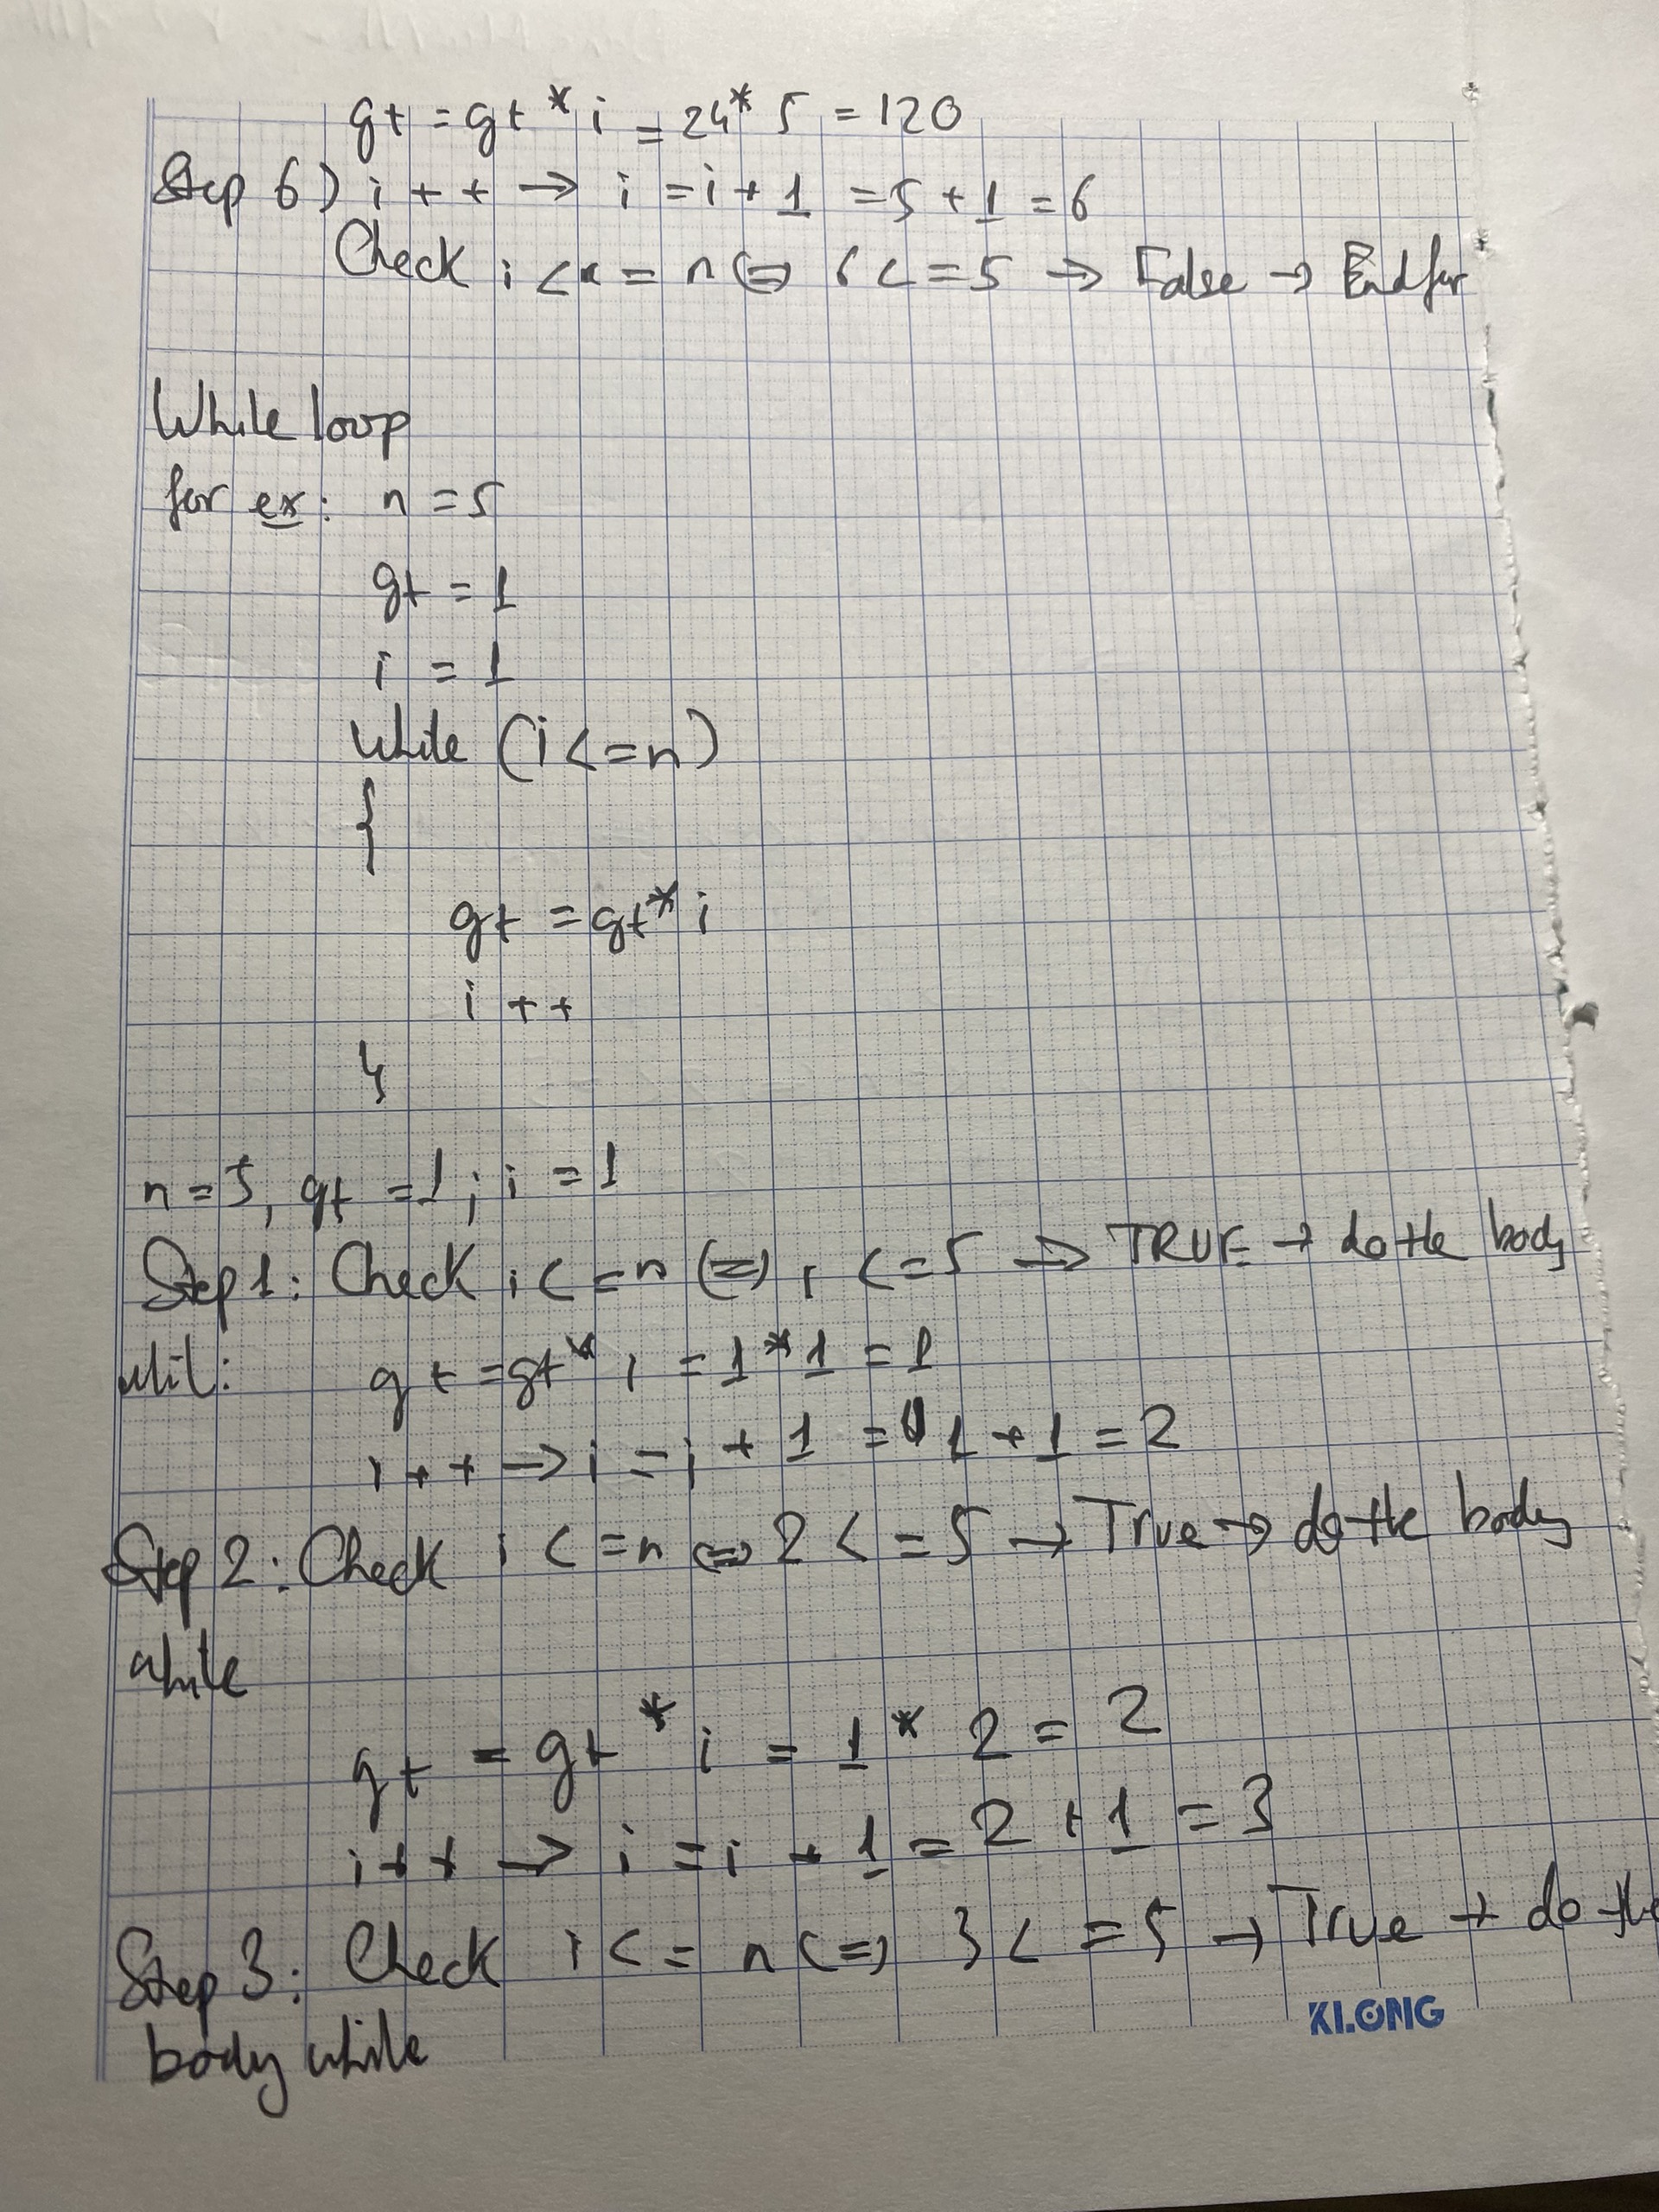 gt = gt * i = 24 * 5 = 120
Step 6) i + + → i = i + 1 = 5 + 1 = 6
Check i < = n (=) 6 < = 5 → False → Endfor
While loop
for ex: n = 5
gt = 1
i = 1
while (i <= n)
{
gt = gt * i
i + +
}
n = 5, gt = 1; i = 1
Step 1: Check i < = n (=) 1 < = 5 → TRUE → do the body
gt = gt * i = 1 * 1 = 1
i + + → i = i + 1 = 1 + 1 = 2
Step 2: Check i < = n <=> 2 < = 5 → True → do the body
while
gt = gt * i = 1 * 2 = 2
i + + → i = i + 1 = 2 + 1 = 3
Step 3: Check i < = n <=> 3 < = 5 → True → do the
body while
KLONG